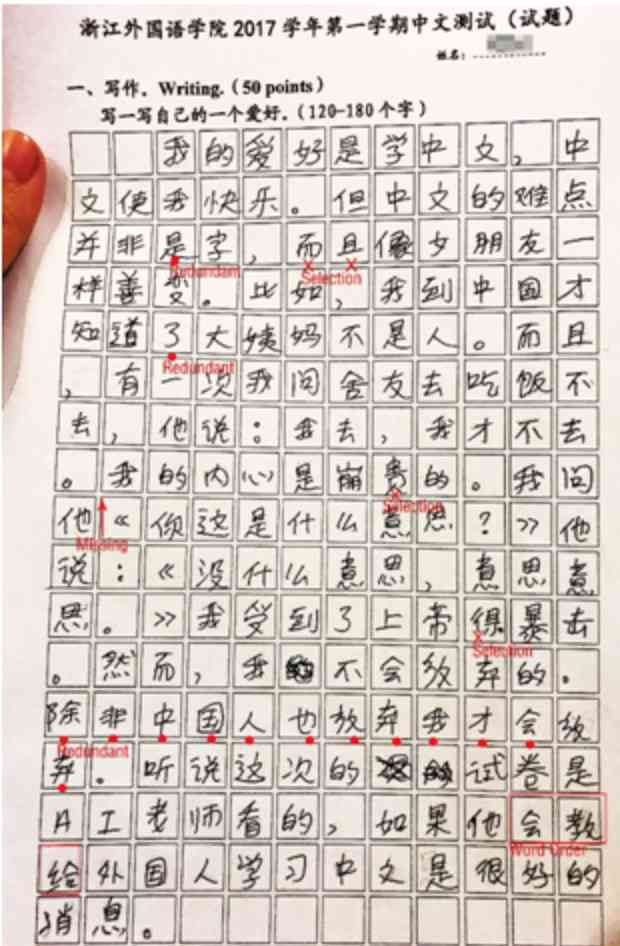 浙江外国语学院 2017 学年第一学期中文测试（试题）
姓名：
一、写作。Writing.（50 points）
写一写自己的一个爱好。（120-180 个字）
我的爱好是学中文，中
文使我快乐。但中文的难点
并非是字，而且像女朋友一
Redundant
Selection
样善变。比如，我到中国才
知道了大姨妈不是人。而且
Redundant
，有一次我问舍友去吃饭不
去，他说：我去，我才不去
。我的内心是崩贵的。我问
Selection
他《你这是什么意思？》他
Missing
说：《没什么意思，意思意
思。》我受到了上帝暴击
Selection
。然而，我不会放弃的。
除非中国人也放弃我才会放
Redundant
弃。听说这次的试卷是
AI老师看的，如果他会教
Word Order
给外国人学习中文是很好的
消息。